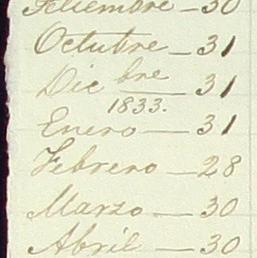 Setiembre — 30
Octubre — 31
Dicbre — 31
1833.
Enero — 31
Febrero — 28
Marzo — 30
Abril — 30